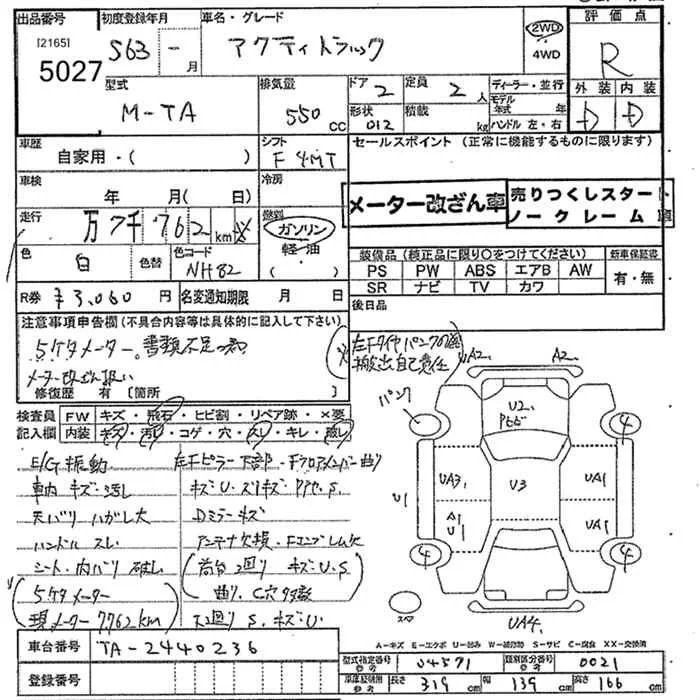 出品番号 初度登録年月 車名・グレード 評価点
[2165]
5027 S63 - 月 アクティトラック 2WD 4WD R
型式 排気量 ドア 2 定員 2 人 ディーラー・並行 外装 内装
M-TA 550 CC 形状 012 積載 kg モデル年式 年 D D
ハンドル 左・右
車歴 シフト セールスポイント (正常に機能するものに限ります)
自家用・( ) F 4MT
車検 冷房
年 月( 日)
メーター改ざん車 売りつくしスタート
ノークレーム 車
走行 万 7千 762 km 燃料 ガソリン
軽・油
( )
色 白 色替 色コード NH82
装備品 (純正品に限り○をつけてください) 新車保証書
PS PW ABS エアB AW 有・無
SR ナビ TV カワ
R券 ¥3,060 円 名変通知期限 月 日 後日品
注意事項申告欄(不具合内容等は具体的に記入して下さい)
5ケタメーター。書類不足の為
メーター改ざん扱い
修復歴 有 [箇所 ]
左Fタイヤパンクの為
搬出自己責任
検査員 FW キズ・飛石・ヒビ割・リペア跡・×要
記入欄 内装 キズ・汚れ・コゲ・穴・スレ・キレ・破レ
E/G 振動 左Fピラー下部・Fフロアメンバー曲り
車内 キズ・汚レ キズ・U・ズリキズ・S.
天バリ ハガレ大 Dミラーキズ
ハンドル スレ アンテナ欠損・Fエンブレム欠
シート・内バリ 破レ (荷台 廻り キズ・U・S.
(5ケタメーター 曲り、C穴多数
現メーター7762km) 下廻り S.キズ・U・
UA2. A2.
パンク U2. 4
UA3. U3 UA1
U1 A1 U1 UA1
4 4
スペア UA4.
A-キズ E-エクボ U-凹み W-補修跡 S-サビ C-腐食 XX-交換済
車台番号 TA-2440236
型式指定番号 参考 04571 類別区分番号 参考 0021
車庫証明用 参考 長さ 319 cm 幅 139 cm 高さ 166 cm